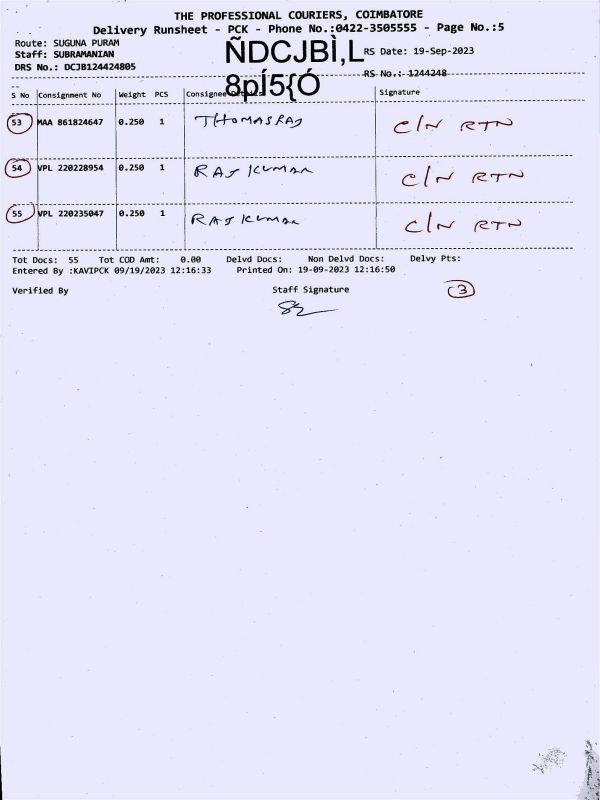 THE PROFESSIONAL COURIERS, COIMBATORE
Delivery Runsheet - PCK - Phone No.:0422-3505555 - Page No.:5
Route: SUGUNA PURAM
Staff: SUBRAMANIAN
DRS No.: DCJB124424805
ÑDCJBÌ,L
8pÍ5{Ó
RS Date: 19-Sep-2023
RS No.: 1244248
S No Consignment No Weight PCS Consignee Details Signature
53 MAA 861824647 0.250 1 THOMASRAJ C/N RTN
54 VPL 220228954 0.250 1 RAJ KUMAR C/N RTN
55 VPL 220235047 0.250 1 RAJ KUMAR C/N RTN
Tot Docs: 55 Tot COD Amt: 0.00 Delvd Docs: Non Delvd Docs: Delvy Pts:
Entered By :KAVIPCK 09/19/2023 12:16:33 Printed On: 19-09-2023 12:16:50
Verified By Staff Signature 3